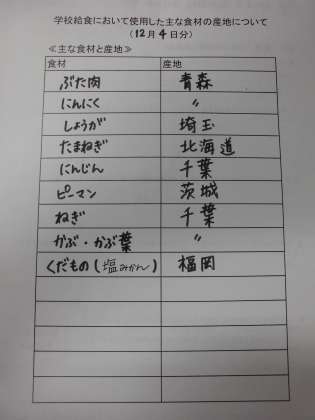 学校給食において使用した主な食材の産地について
(12月4日分)
≪主な食材と産地≫
食材 産地
ぶた肉 青森
にんにく 〃
しょうが 埼玉
たまねぎ 北海道
にんじん 千葉
ピーマン 茨城
ねぎ 千葉
かぶ・かぶ葉 〃
くだもの(塩みかん) 福岡